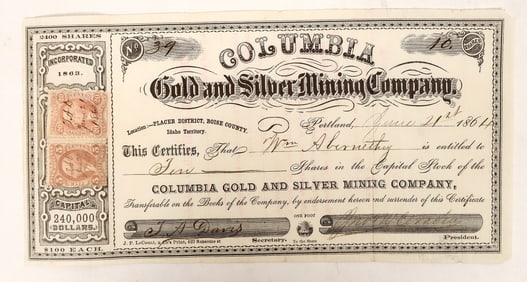 2400 SHARES
INCORPORATED
1863.
CAPITAL
240,000
DOLLARS.
$100 EACH.
No 39
10
COLUMBIA
Gold and Silver Mining Company.
Location:—PLACER DISTRICT, BOISE COUNTY,
Idaho Territory.
Portland, June 21st 1864
This Certifies, That Wm Abernethy is entitled to
Ten Shares in the Capital Stock of the
COLUMBIA GOLD AND SILVER MINING COMPANY,
Transferable on the Books of the Company, by endorsement hereon and surrender of this Certificate
ONE FOOT
To the Share
Secretary.
President.